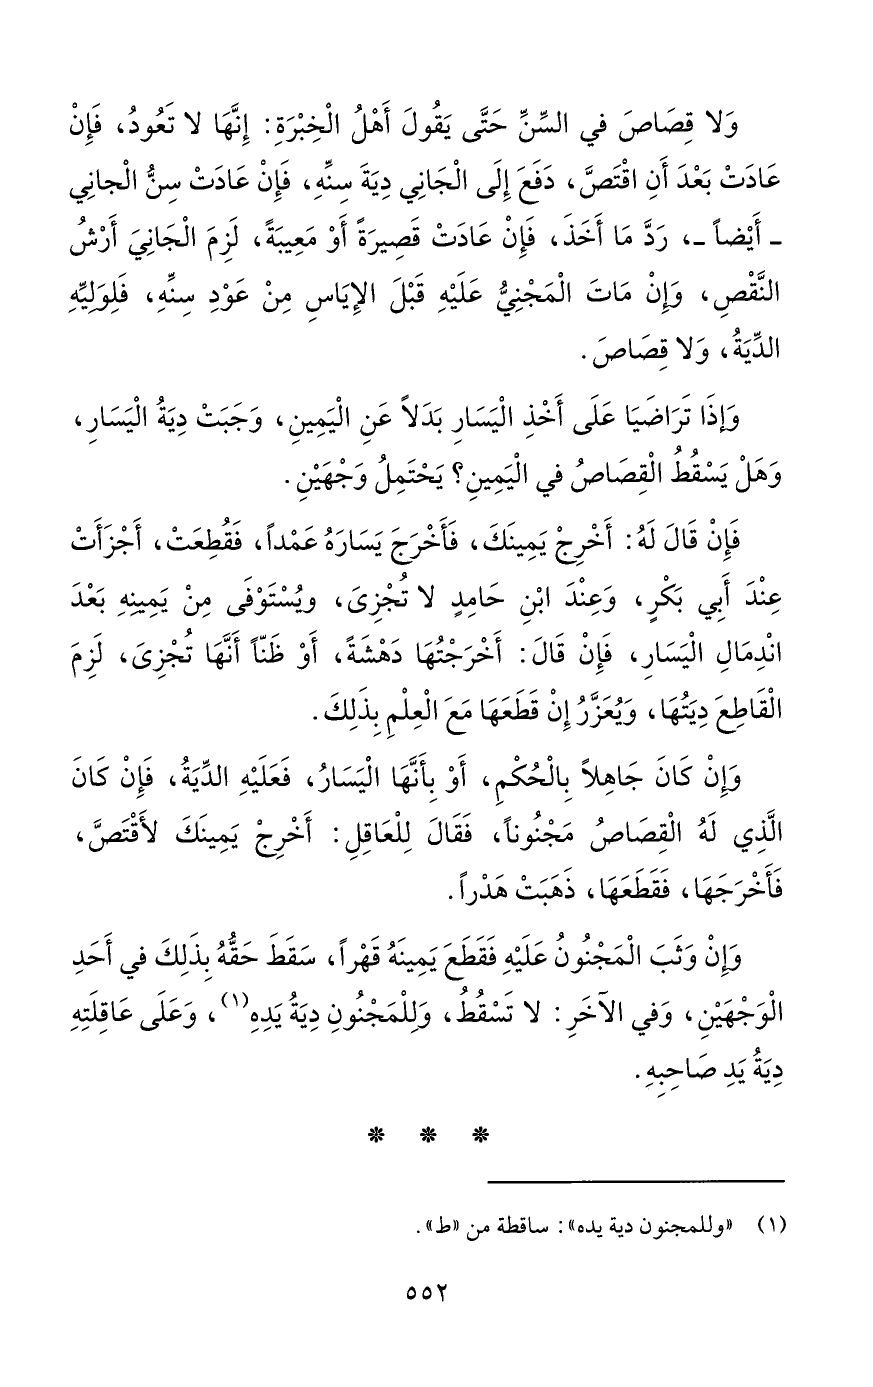 وَلا قِصَاصَ في السِّنِّ حَتَّى يَقُولَ أَهْلُ الْخِبْرَةِ: إِنَّهَا لا تَعُودُ، فَإِنْ
عَادَتْ بَعْدَ أَنِ اقْتَصَّ، دَفَعَ إِلَى الْجَانِي دِيَةَ سِنِّهِ، فَإِنْ عَادَتْ سِنُّ الْجاني
ـ أَيْضاً ـ، رَدَّ مَا أَخَذَ، فَإِنْ عَادَتْ قَصِيرَةً أَوْ مَعِيبَةً، لَزِمَ الْجَانِيَ أَرْشُ
النَّقْصِ، وَإِنْ مَاتَ الْمَجْنِيُّ عَلَيْهِ قَبْلَ الإِيَاسِ مِنْ عَوْدِ سِنِّهِ، فَلِوَلِيِّهِ
الدِّيَةُ، وَلا قِصَاصَ.
وَإِذَا تَرَاضَيَا عَلَى أَخْذِ الْيَسَارِ بَدَلاً عَنِ الْيَمِينِ، وَجَبَتْ دِيَةُ الْيَسَارِ،
وَهَلْ يَسْقُطُ الْقِصَاصُ في الْيَمِينِ؟ يَحْتَمِلُ وَجْهَيْنِ.
فَإِنْ قَالَ لَهُ: أَخْرِجْ يَمِينَكَ، فَأَخْرَجَ يَسَارَهُ عَمْداً، فَقُطِعَتْ، أَجْزَأَتْ
عِنْدَ أَبِي بَكْرٍ، وَعِنْدَ ابْنِ حَامِدٍ لا تُجْزِىَ، ويُسْتَوْفَى مِنْ يَمِينِهِ بَعْدَ
انْدِمَالِ الْيَسَارِ، فَإِنْ قَالَ: أَخْرَجْتُهَا دَهْشَةً، أَوْ ظَنّاً أَنَّهَا تُجْزِىَ، لَزِمَ
الْقَاطِعَ دِيَتُهَا، وَيُعَزَّرُ إِنْ قَطَعَهَا مَعَ الْعِلْمِ بِذَلِكَ.
وَإِنْ كَانَ جَاهِلاً بِالْحُكْمِ، أَوْ بِأَنَّهَا الْيَسَارُ، فَعَلَيْهِ الدِّيَةُ، فَإِنْ كَانَ
الَّذِي لَهُ الْقِصَاصُ مَجْنُوناً، فَقَالَ لِلْعَاقِلِ: أَخْرِجْ يَمِينَكَ لأَقْتَصَّ،
فَأَخْرَجَهَا، فَقَطَعَهَا، ذَهَبَتْ هَدْراً.
وَإِنْ وَثَبَ الْمَجْنُونُ عَلَيْهِ فَقَطَعَ يَمِينَهُ قَهْراً، سَقَطَ حَقُّهُ بِذَلِكَ في أَحَدِ
الْوَجْهَيْنِ، وَفي الآخَرِ: لا تَسْقُطُ، وَلِلْمَجْنُونِ دِيَةُ يَدِهِ(١)، وَعَلَى عَاقِلَتِهِ
دِيَةُ يَدِ صَاحِبِهِ.
* * *
(١) «وللمجنون دية يده»: ساقطة من «ط».
٥٥٢